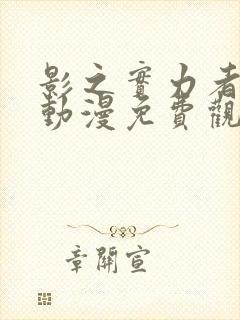 影之實力者
動漫免費觀
章開宣